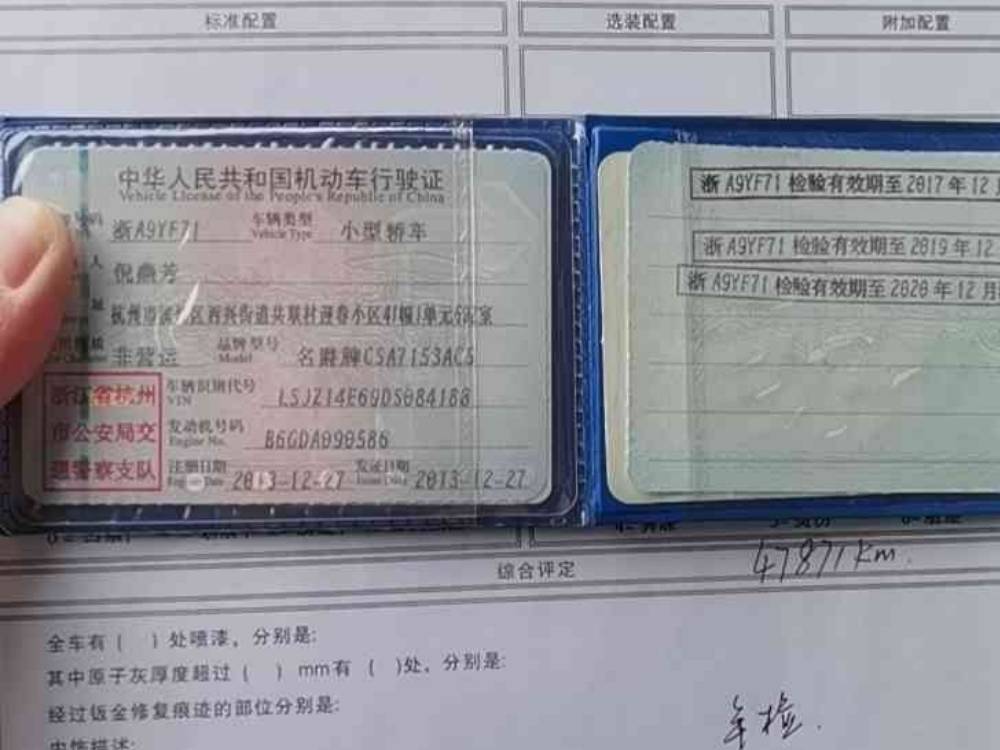 标准配置
选装配置
附加配置
中华人民共和国机动车行驶证
Vehicle License of the People's Republic of China
号码 浙A9YF71 车辆类型 Vehicle Type 小型轿车
人 倪燕芳
址 杭州市滨江区西兴街道共联村迎春小区41幢1单元 室
非营运 品牌型号 Model 名爵牌CSA7153ACS
浙江省杭州
市公安局交
通警察支队
车辆识别代号 VIN LSJZ14E69DS084188
发动机号码 Engine No. B6GDA090586
注册日期 2013-12-27 发证日期 Issue Date 2013-12-27
浙A9YF71检验有效期至2017年12
浙A9YF71检验有效期至2019年12
浙A9YF71检验有效期至2020年12月
综合评定
47871km.
全车有( )处喷漆,分别是:
其中原子灰厚度超过( )mm有( )处,分别是:
经过钣金修复痕迹的部位分别是:
内饰描述:
年检.